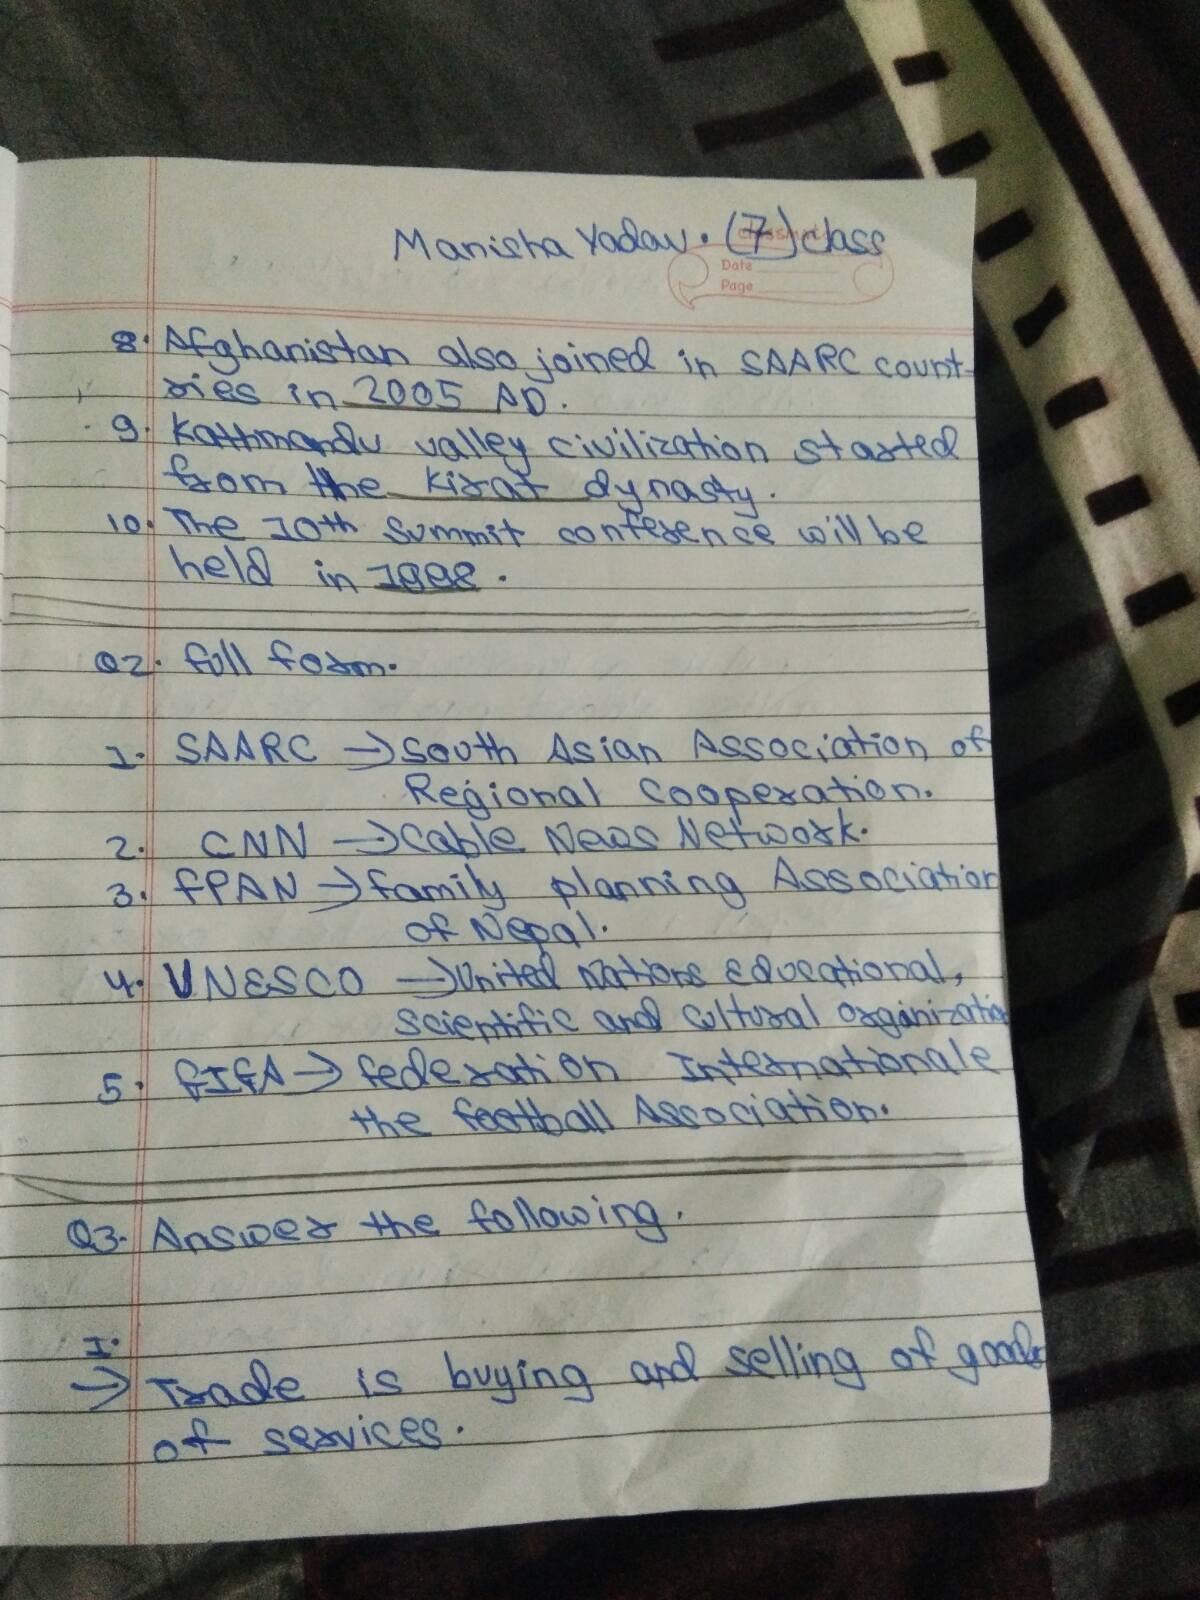 Manisha Yadav. (7) class
classmate
Date
Page
8. Afghanistan also joined in SAARC count-
ries in 2005 AD.
9. Kathmandu valley civilization started
from the Kirat dynasty.
10. The 10th Summit conference will be
held in 1998.
Q2. full form.
1. SAARC → South Asian Association of
Regional Cooperation.
2. CNN → Cable News Network.
3. FPAN → family planning Association
of Nepal.
4. UNESCO → United Nations Educational,
scientific and cultural organization
5. FIFA → federation Internationale
the football Association.
Q3. Answer the following.
I.
→ Trade is buying and selling of goods
of services.